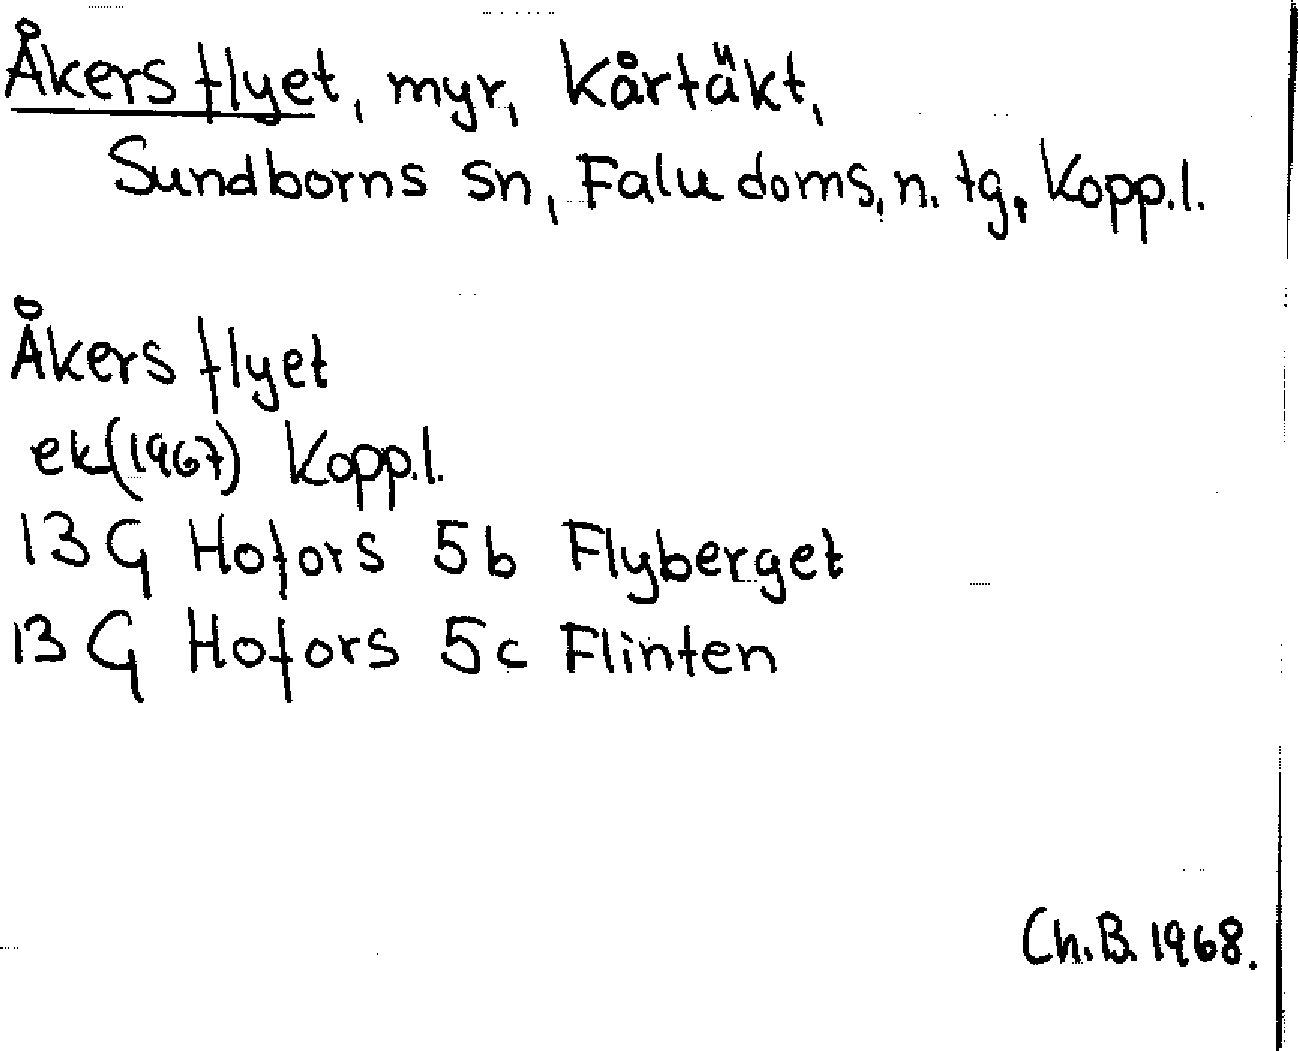 Åkersflyet, myr, Kårtäkt,
Sundborns sn, Falu doms, n. tg, Kopp.l.
Åkersflyet
ek(1967) Kopp.l.
13 G Hofors 5b Flyberget
13 G Hofors 5c Flinten
Ch.B. 1968.